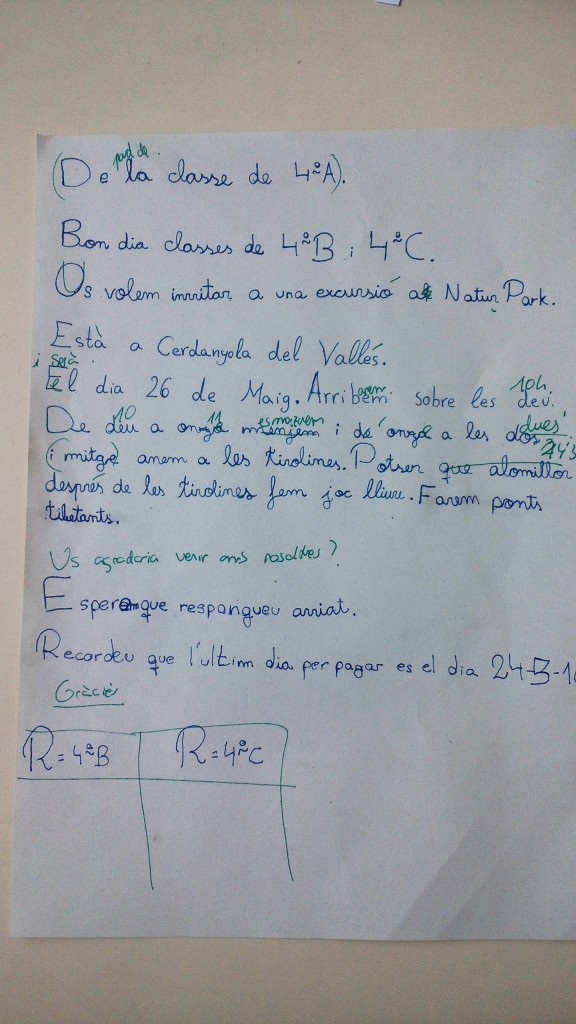 part de
(De la classe de 4ºA).
Bon dia classes de 4ºB i 4ºC.
Us volem invitar a una excursió al Natur Park.
Està a Cerdanyola del Vallés.
i serà
El dia 26 de Maig. Arribem sobre les deu.
arem 10h.
De deu a onze menjem i de onze a les dos
10 11 esmorzarem dues
(i mitge) anem a les tirolines. Potser que alomillor
després de les tirolines fem joc lliure. Farem ponts
tibetants.
Us agradaria venir amb nosaltres?
Esperem que respongueu aviat.
Recordeu que l'ultim dia per pagar es el dia 24-5-16
Gràcie
R=4ºB R=4ºC